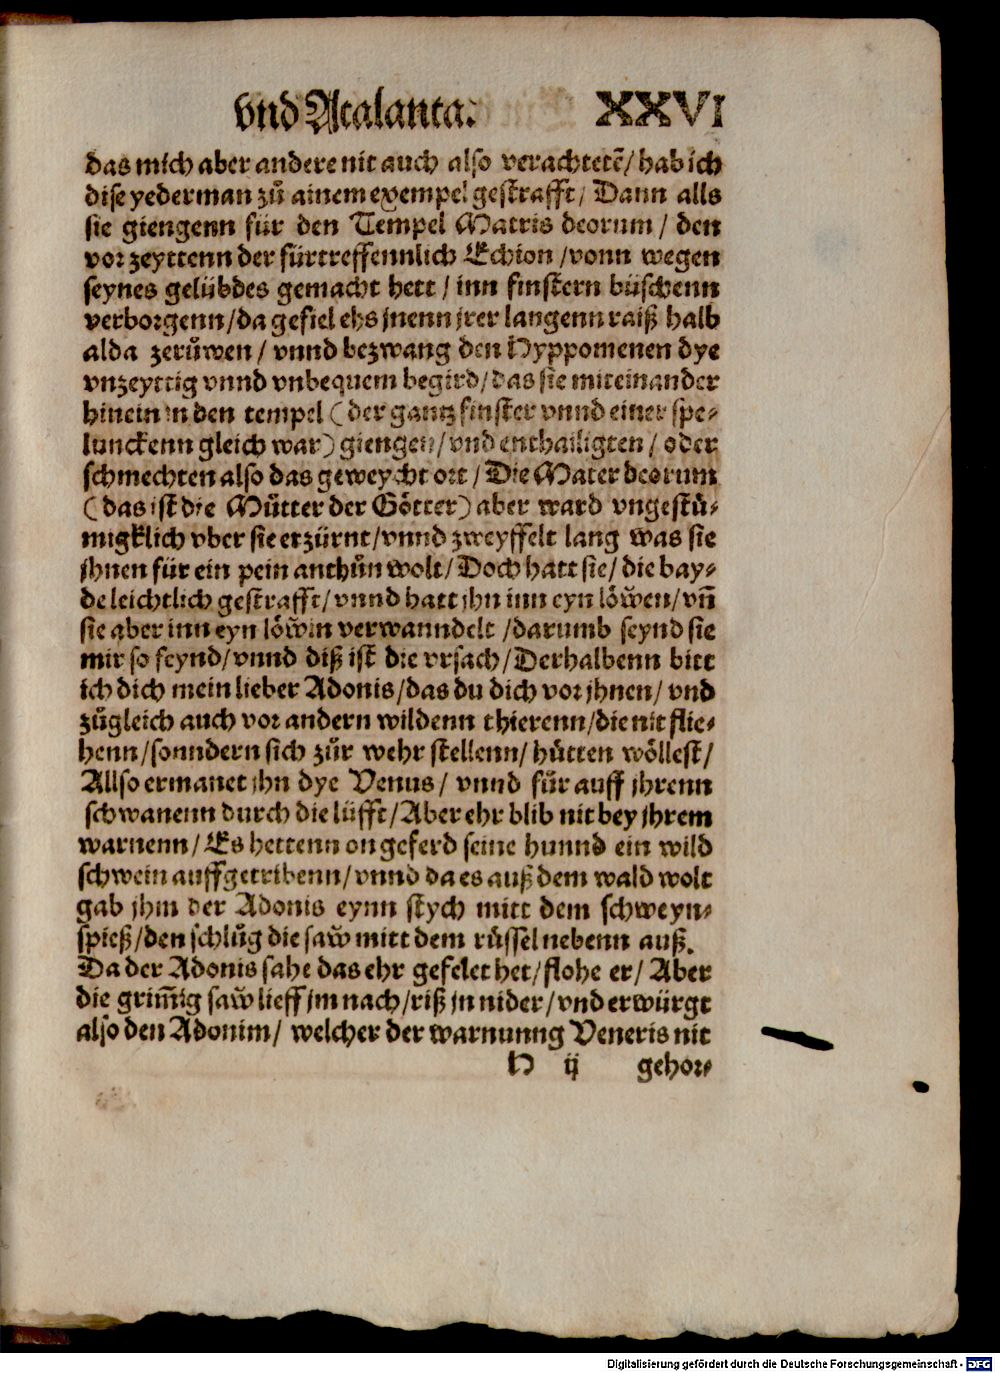 vnd Atalanta. XXVI
das mich aber andere nit auch also verachtetē/ hab ich
dise yederman zů ainem exempel gestrafft/ Dann alls
sie giengenn für den Tempel Matris deorum/ den
vor zeyttenn der fürtreffennlich Echion/ vonn wegen
seynes gelübdes gemacht hett/ inn finstern büschenn
verborgenn/ da gefiel ehs jnenn jrer langenn raiß halb
alda zerůwen/ vnnd bezwang den Hyppomenen dye
vnzeyttig vnnd vnbequem begird/ das sie miteinander
hinein in den tempel (der gantz finster vnnd einer spe-
lunckenn gleich war) giengen/ vnd enthailigten/ oder
schmechten also das geweycht ort/ Die Mater deorum
(das ist die Můtter der Götter) aber ward vngestů-
migklich vber sie erzürnt/ vnnd zweyffelt lang was sie
jhnen für ein pein anthůn wolt/ Doch hatt sie/ die bay-
de leichtlich gestrafft/ vnnd hatt jhn inn eyn löwen/ vñ
sie aber inn eyn löwin verwanndelt/ darumb seynd sie
mir so feynd/ vnnd diß ist die vrsach/ Derhalbenn bitt
ich dich mein lieber Adonis/ das du dich vor jhnen/ vnd
zůgleich auch vor andern wildenn thierenn/ die nit flie-
henn/ sonndern sich zůr wehr stellenn/ hůtten wöllest/
Allso ermanet jhn dye Venus/ vnnd fůr auff jhrenn
schwanenn durch die lüfft/ Aber ehr blib nit bey jhrem
warnenn/ Es hettenn ongeferd seine hunnd ein wild
schwein auffgetribenn/ vnnd da es auß dem wald wolt
gab jhm der Adonis eynn stych mitt dem schweyn-
spieß/ den schlůg die saw mitt dem rüssel nebenn auß.
Da der Adonis sahe das ehr gefelet het/ flohe er/ Aber
die grim̄ig saw lieff jm nach/ riß jn nider/ vnd erwürgt
also den Adonim/ welcher der warnunng Veneris nit
H ij gehor-
Digitalisierung gefördert durch die Deutsche Forschungsgemeinschaft - DFG